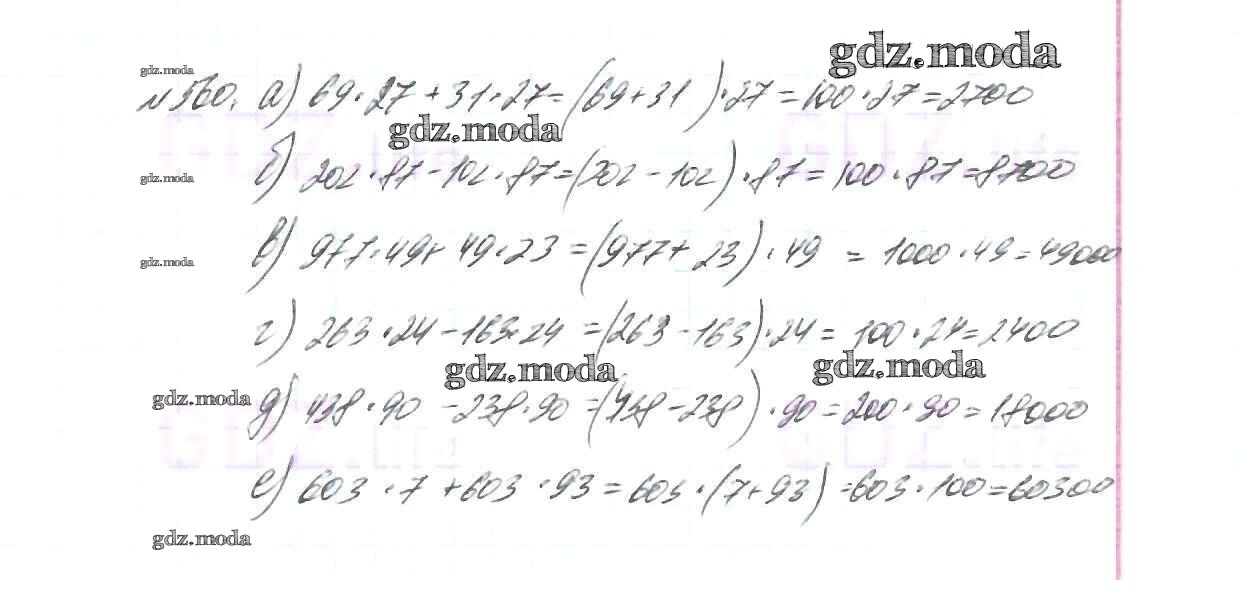 gdz.moda
gdz.moda
№560. а) 69·27+31·27=(69+31)·27=100·27=2700
gdz.moda
gdz.moda
б) 202·87-102·87=(202-102)·87=100·87=8700
gdz.moda
в) 977·49+49·23=(977+23)·49=1000·49=49000
г) 263·24-163·24=(263-163)·24=100·24=2400
gdz.moda
gdz.moda
gdz.moda
д) 438·90-238·90=(438-238)·90=200·90=18000
е) 603·7+603·93=603·(7+93)=603·100=60300
gdz.moda